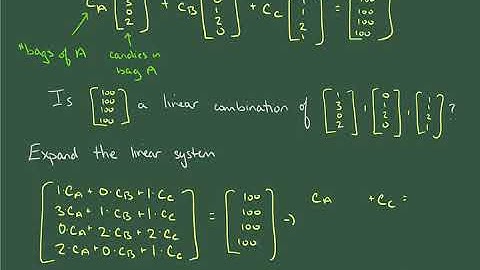 C_A [ 3 0 2 ] + C_B [ 1 2 0 ] + C_C [ 1 2 1 ] = [ 100 100 100 ]
#bags of A
candies in bag A
Is [ 100 100 100 100 ] a linear combination of [ 1 3 0 2 ] , [ 0 1 2 0 ] , [ 1 1 2 1 ] ?
Expand the linear system
[ 1·C_A + 0·C_B + 1·C_C = [ 100 → C_A + C_C =
3·C_A + 1·C_B + 1·C_C 100
0·C_A + 2·C_B + 2·C_C 100
2·C_A + 0·C_B + 1·C_C ] 100 ]